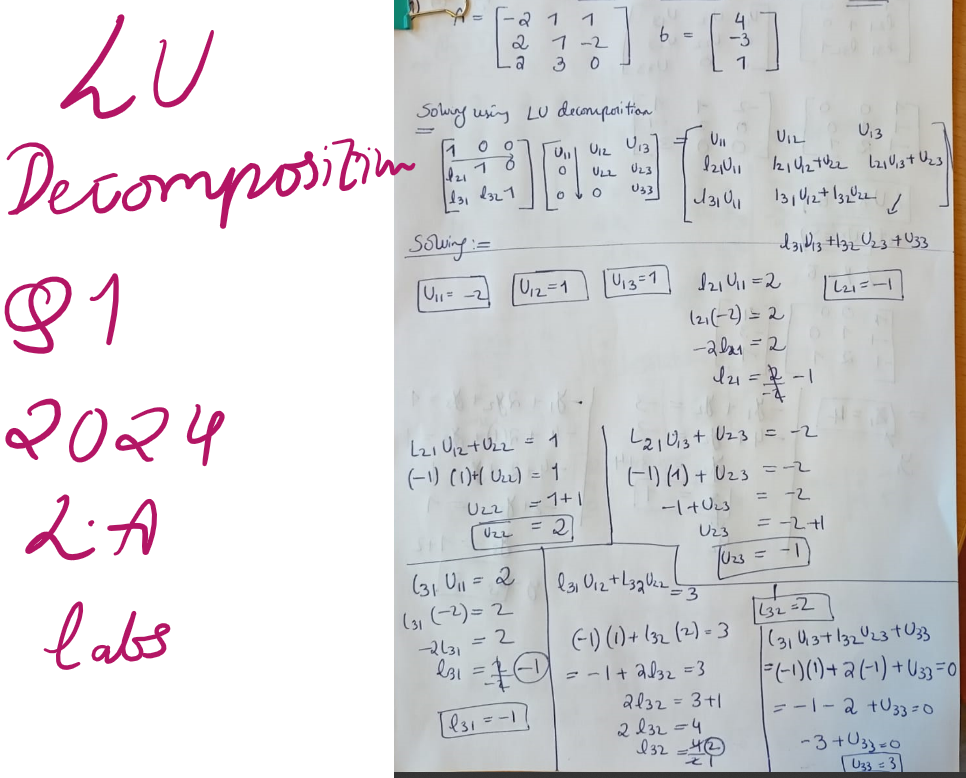 LU
Decomposition
Q1
2024
L.A
labs
A = [ -2 1 1
2 1 -2
2 3 0 ]
b = [ 4
-3
1 ]
Solving using LU decomposition
[ 1 0 0
l21 1 0
l31 l32 1 ]
[ U11 U12 U13
0 U22 U23
0 0 U33 ]
= [ U11 U12 U13
l21U11 l21U12+U22 L21U13+U23
l31U11 l31U12+l32U22 ]
l31U13+l32U23+U33
Solving:=
U11 = -2
U12 = 1
U13 = 1
l21U11 = 2
l21(-2) = 2
-2l21 = 2
l21 = 2/-2 -1
L21 = -1
L21U12+U22 = 1
(-1) (1)+(U22) = 1
U22 = 1+1
U22 = 2
L21U13+U23 = -2
(-1)(1)+U23 = -2
-1+U23 = -2
U23 = -2+1
U23 = -1
l31U11 = 2
l31(-2) = 2
-2l31 = 2
l31 = 2/-2 -1
l31 = -1
l31U12+L32U22 = 3
(-1)(1)+l32(2) = 3
= -1+2l32 = 3
2l32 = 3+1
2l32 = 4
l32 = 4/2 2/1
L32 = 2
l31U13+l32U23+U33
=(-1)(1)+2(-1)+U33=0
= -1-2+U33=0
-3+U33=0
U33 = 3